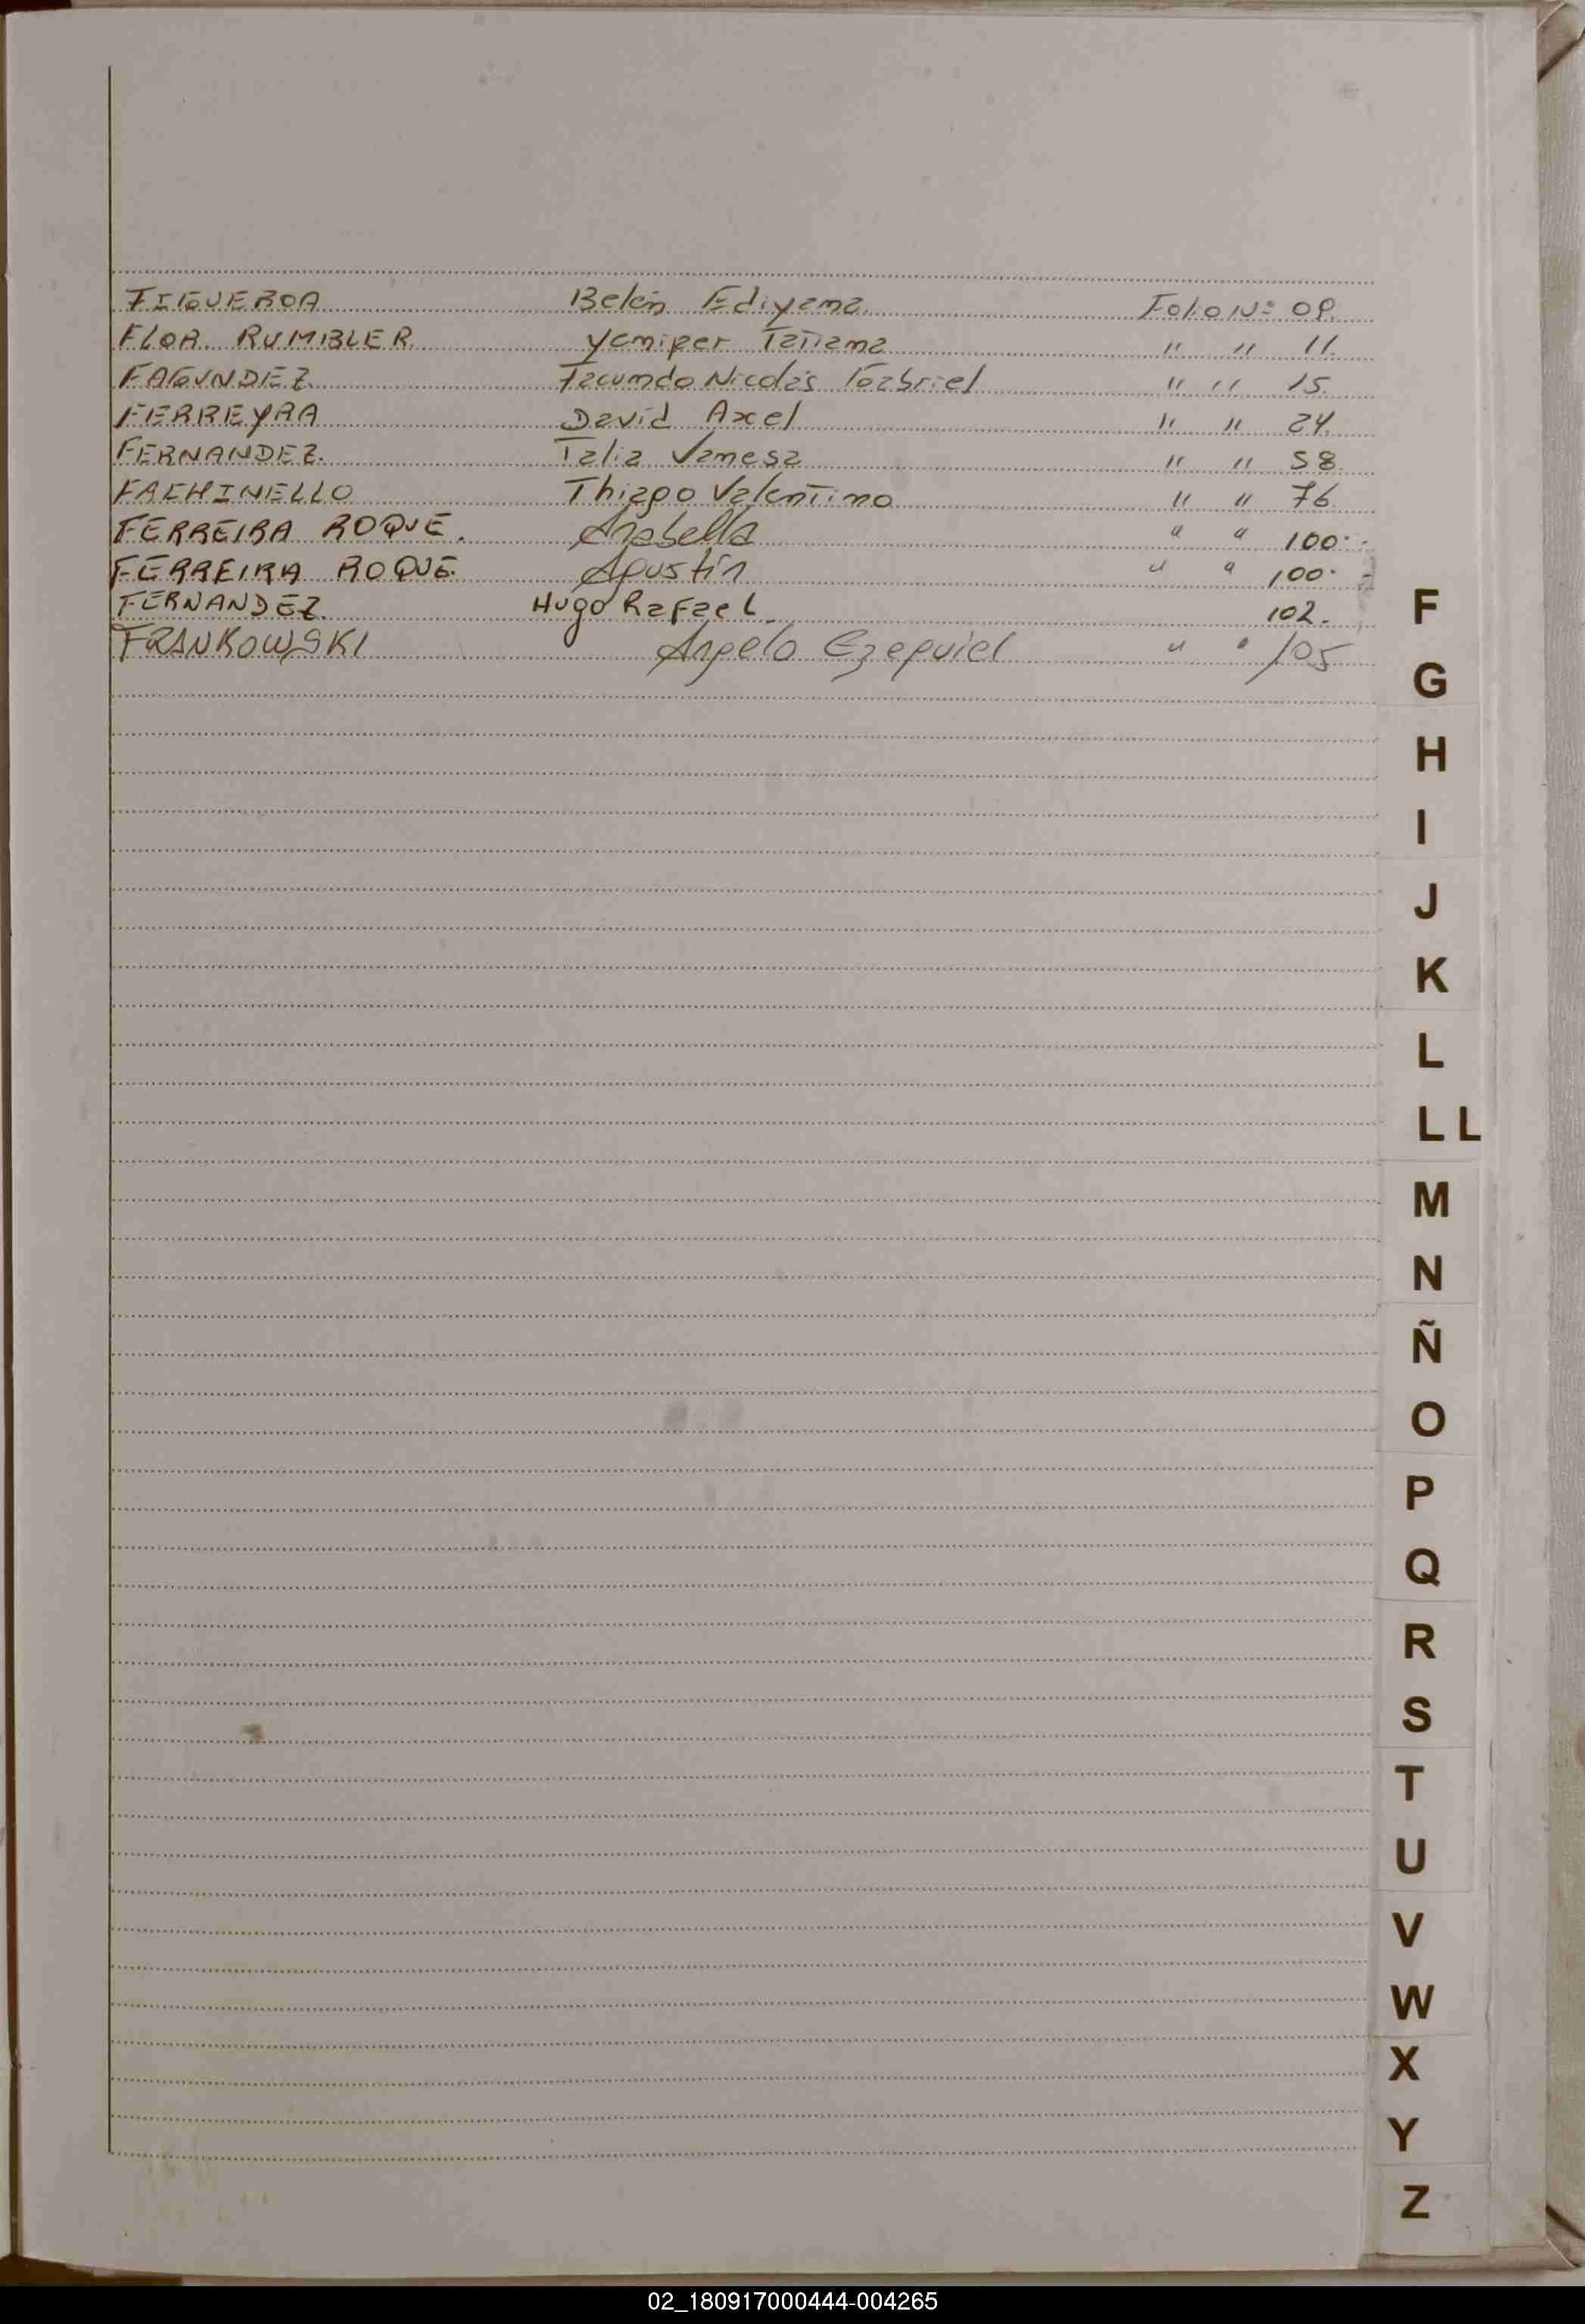 FIGUEROA Belén Ediyana Folio Nº 09.
FLOR RUMIBLER Yeniper Tatiana " " 11.
FAGUNDEZ Facundo Nicolás Gabriel " " 15.
FERREYRA David Axel " " 24.
FERNANDEZ. Talia Vanesa " " 58.
FACHINELLO Thiago Valentino " " 76
FERREIRA ROQUE. Anabella " " 100.-
FERREIRA ROQUE. Agustín " " 100.-
FERNANDEZ. Hugo Rafael 102.
FRANKOWSKI Angelo Ezequiel " " 105
F
G
H
I
J
K
L
LL
M
N
Ñ
O
P
Q
R
S
T
U
V
W
X
Y
Z
02_180917000444-004265